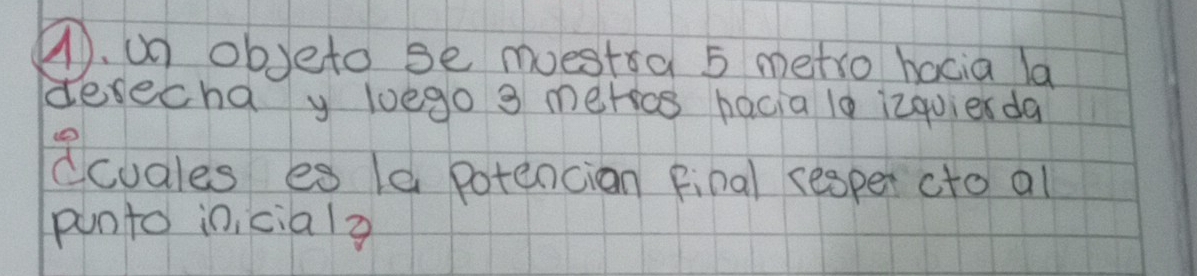 1). un objeto se muestra 5 metro hacia la
derecha y luego 3 metros hacia la izquierda
¿cuales es la potencian final respecto al
punto inicial?